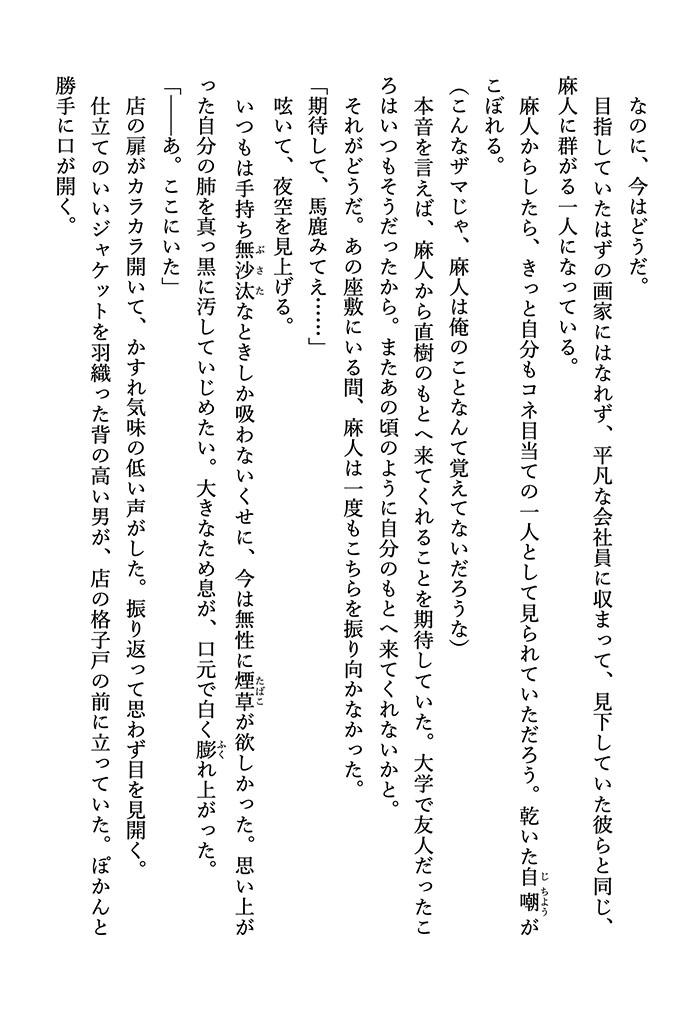 なのに、今はどうだ。
目指していたはずの画家にはなれず、平凡な会社員に収まって、見下していた彼らと同じ、
麻人に群がる一人になっている。
麻人からしたら、きっと自分もコネ目当ての一人として見られていただろう。乾いた自嘲が
こぼれる。
(こんなザマじゃ、麻人は俺のことなんて覚えてないだろうな)
本音を言えば、麻人から直樹のもとへ来てくれることを期待していた。大学で友人だったこ
ろはいつもそうだったから。またあの頃のように自分のもとへ来てくれないかと。
それがどうだ。あの座敷にいる間、麻人は一度もこちらを振り向かなかった。
「期待して、馬鹿みてえ……」
呟いて、夜空を見上げる。
いつもは手持ち無沙汰なときしか吸わないくせに、今は無性に煙草が欲しかった。思い上が
った自分の肺を真っ黒に汚していじめたい。大きなため息が、口元で白く膨れ上がった。
「――あ。ここにいた」
店の扉がカラカラ開いて、かすれ気味の低い声がした。振り返って思わず目を見開く。
仕立てのいいジャケットを羽織った背の高い男が、店の格子戸の前に立っていた。ぽかんと
勝手に口が開く。